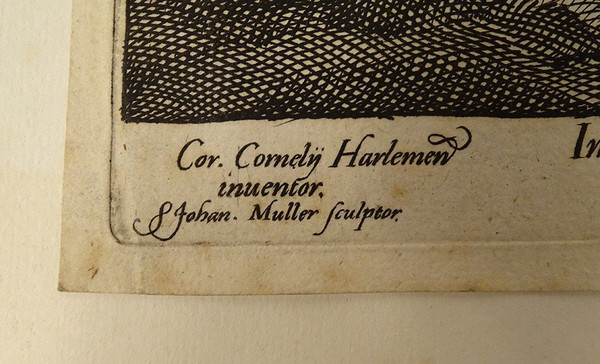 Cor. Cornelij Harlemen
inuentor.
Johan. Muller sculptor.
In